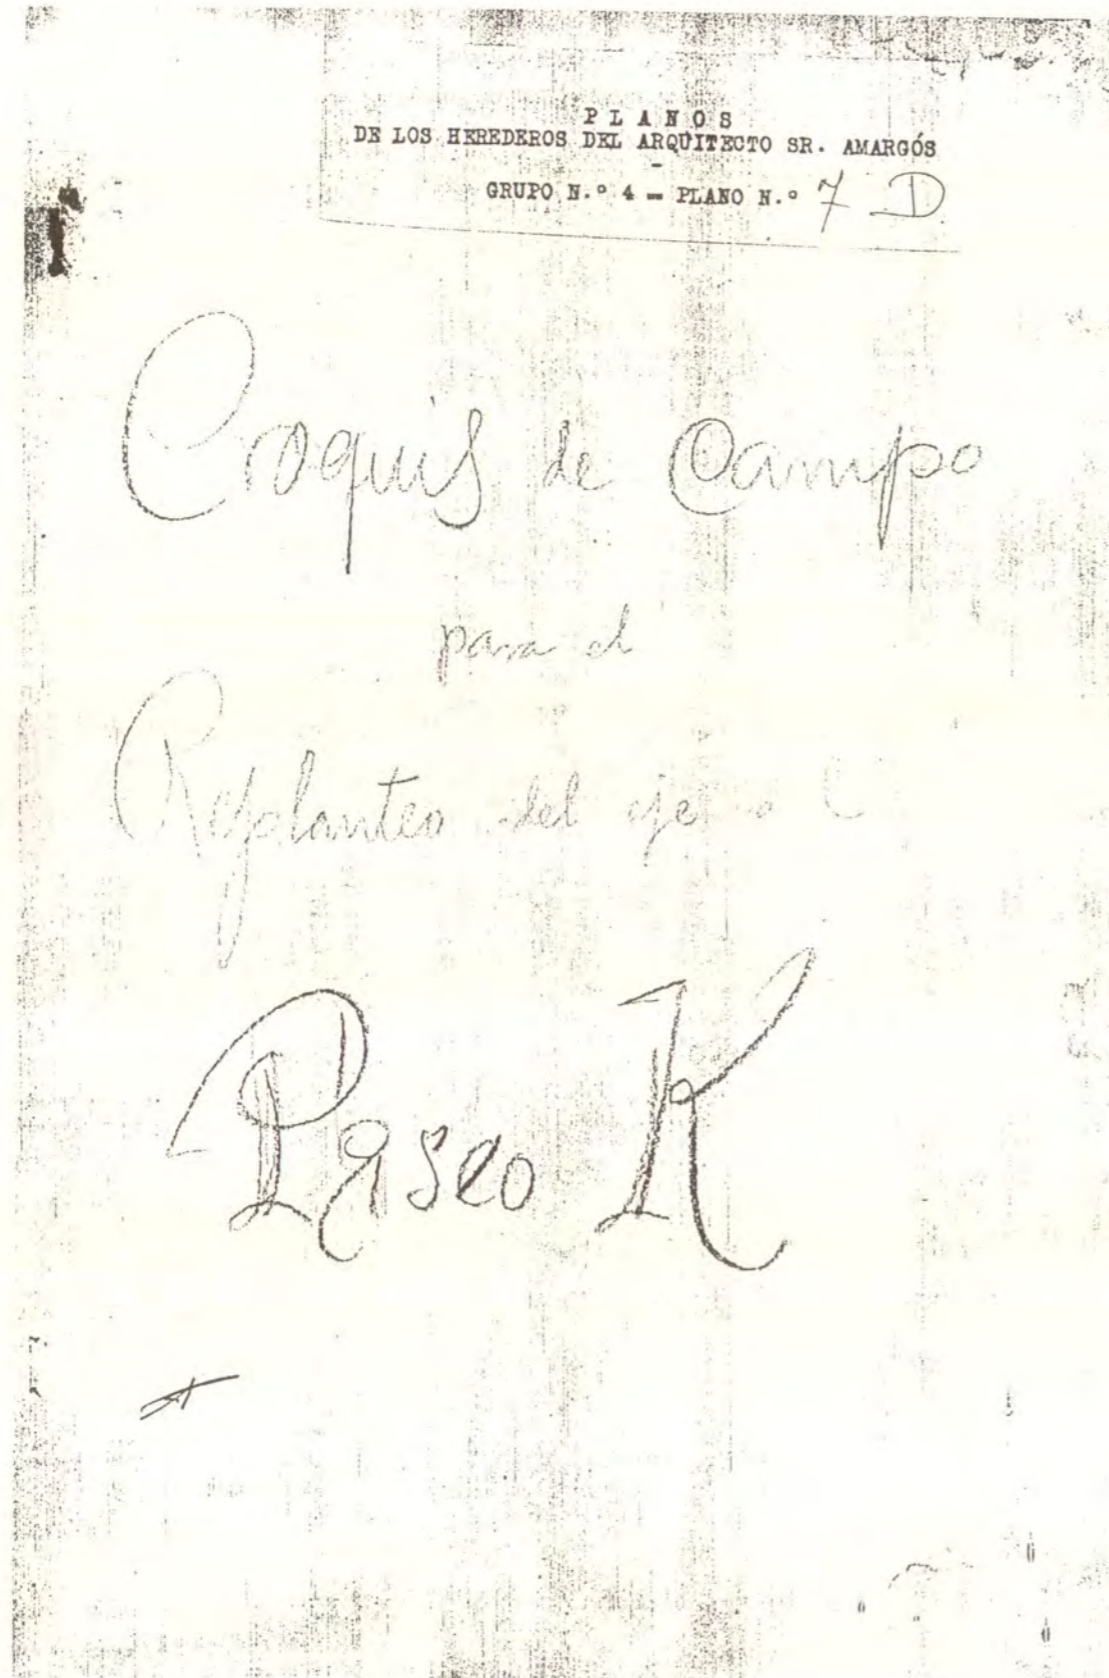 PLANOS
DE LOS HEREDEROS DEL ARQUITECTO SR. AMARGÓS
-
GRUPO N.º 4 - PLANO N.º 7 D
Croquis de Campo
para el
Replanteo del eje
Paseo K